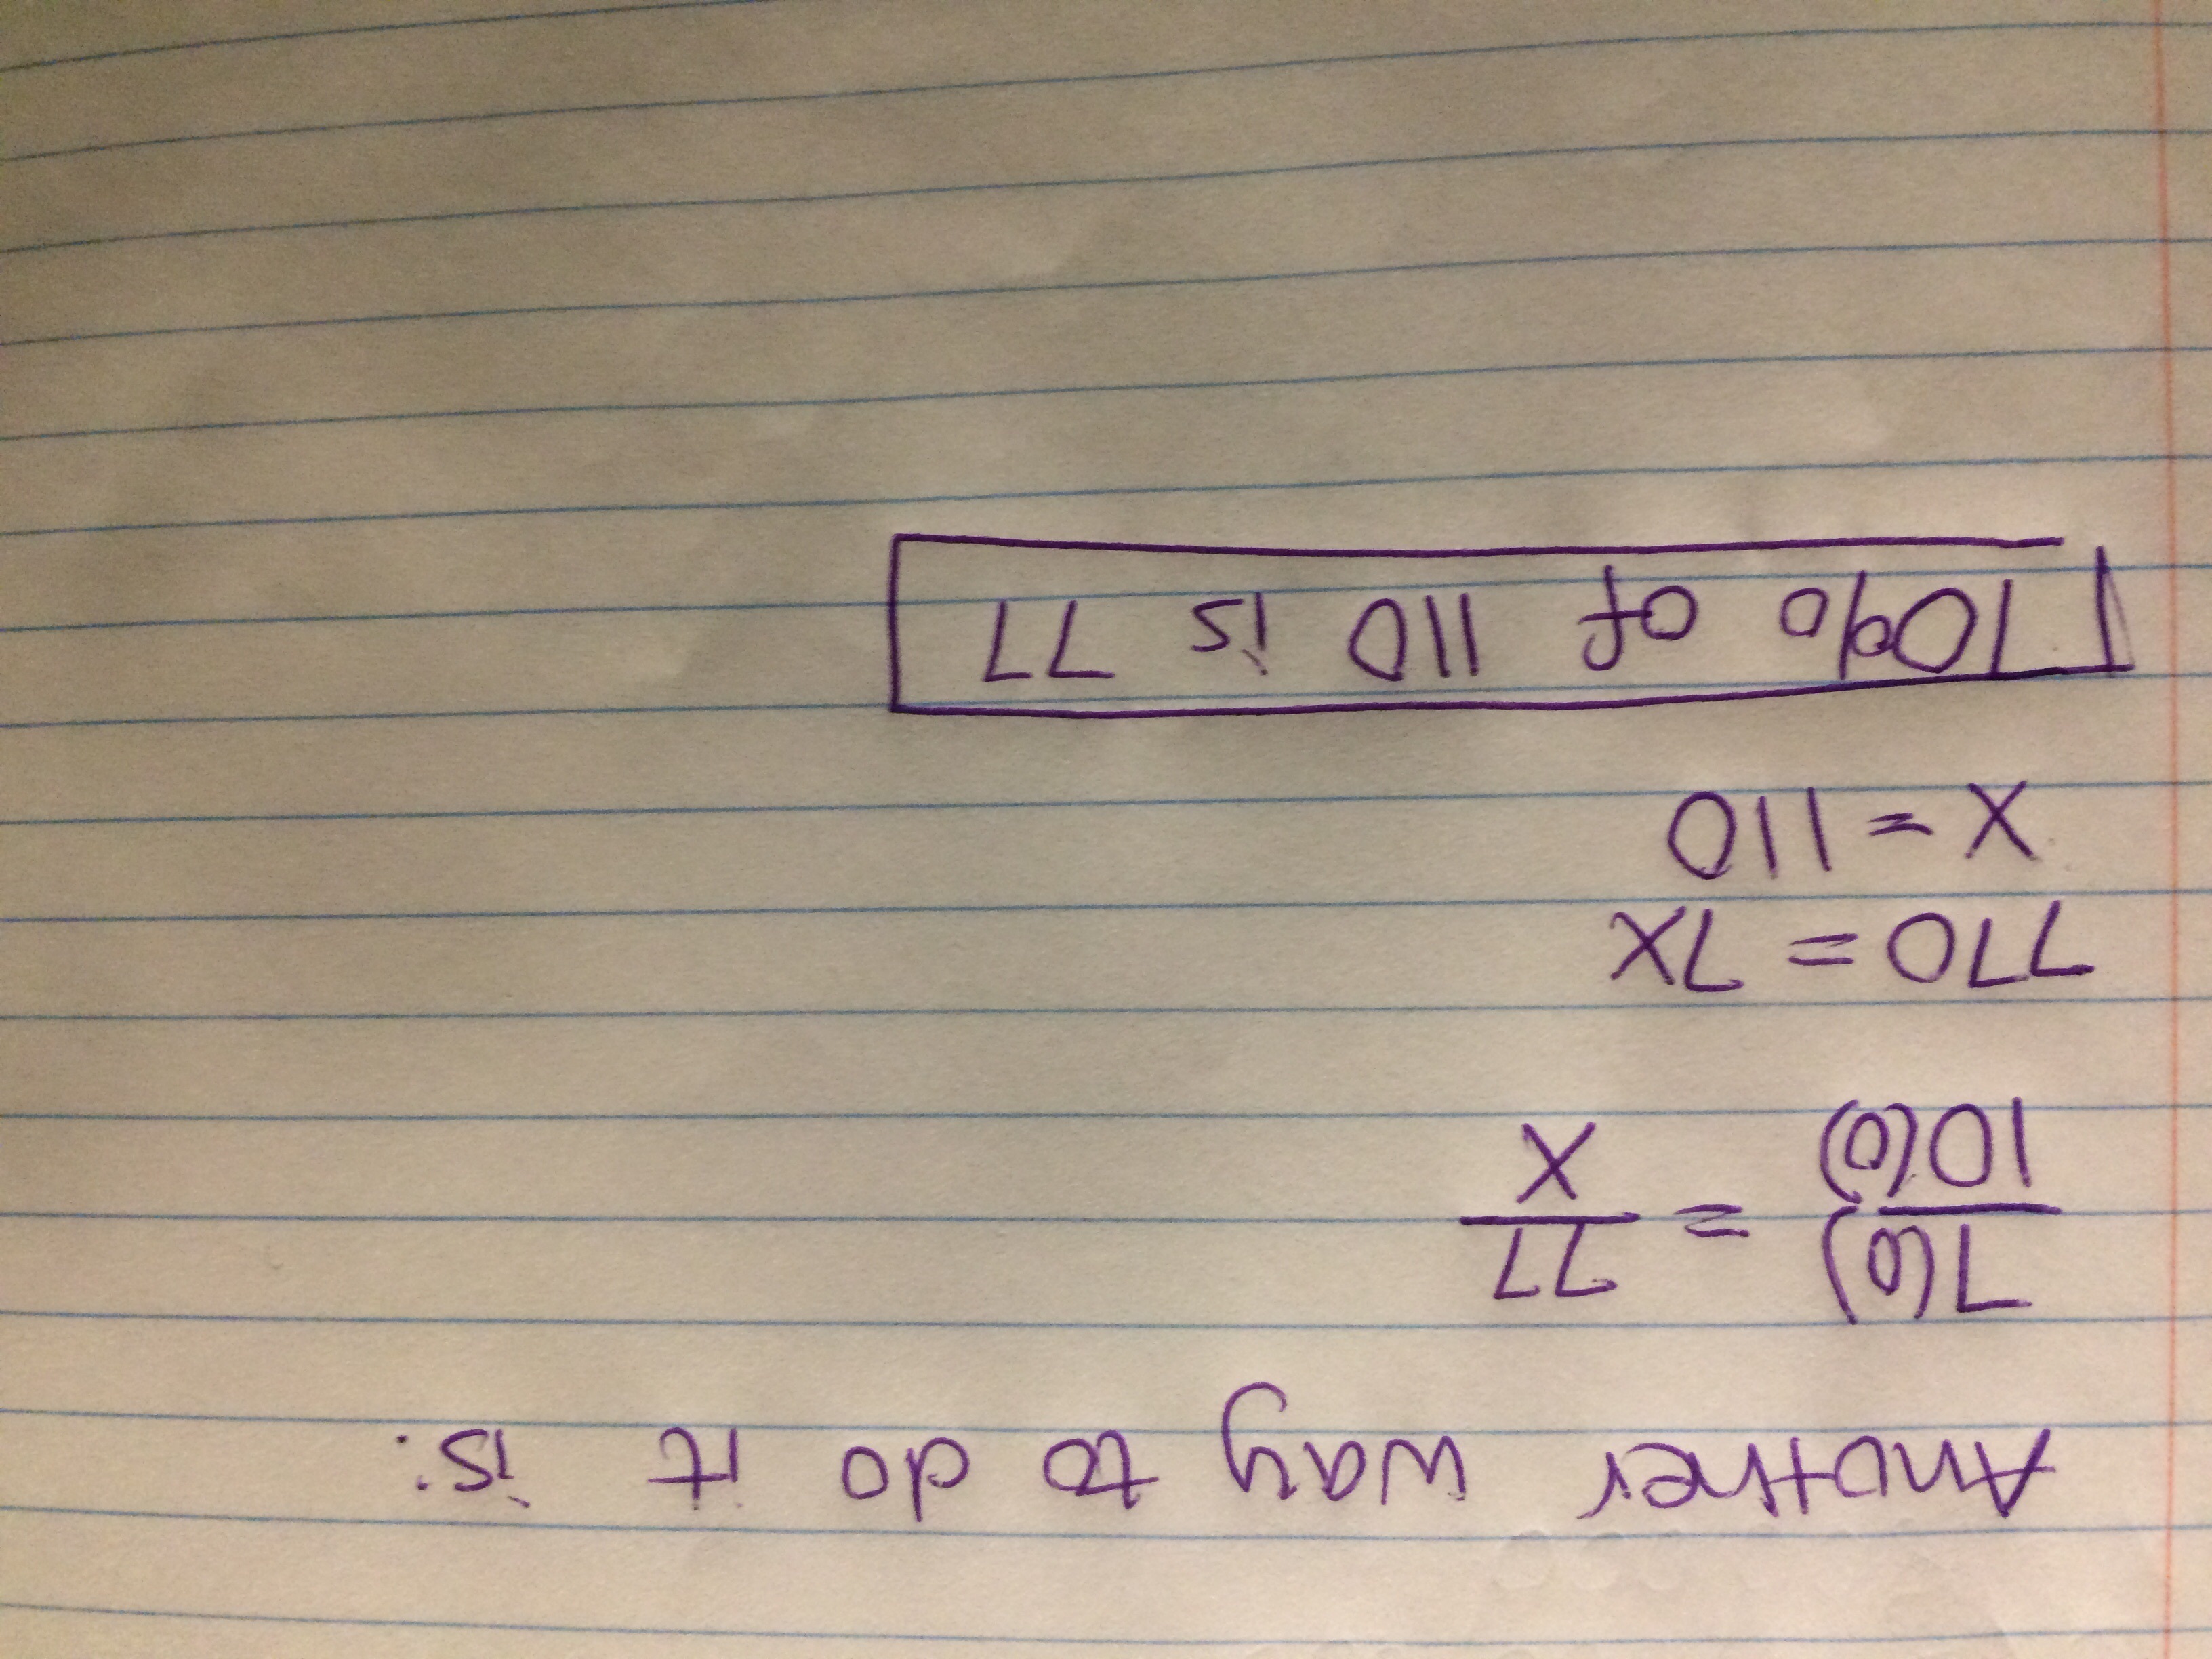 Another way to do it is:
7(0)/10(0) = 77/X
770 = 7x
X = 110
70% of 110 is 77